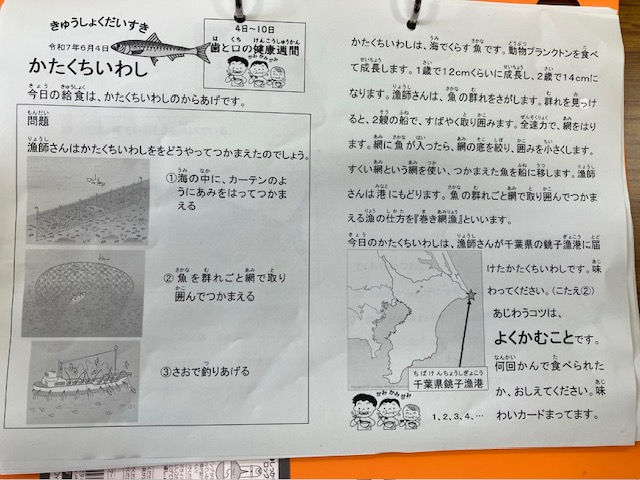 きゅうしょくだいすき
令和7年6月4日
かたくちいわし
4日~10日
歯と口の健康週間
今日の給食は、かたくちいわしのからあげです。
問題
漁師さんはかたくちいわしををどうやってつかまえたのでしょう。
①海の中に、カーテンのよ
うにあみをはってつかま
える
②魚を群れごと網で取り
囲んでつかまえる
③さおで釣りあげる
かたくちいわしは、海でくらす魚です。動物プランクトンを食べ
て成長します。1歳で12cmくらいに成長し、2歳で14cmに
なります。漁師さんは、魚の群れをさがします。群れを見つけ
ると、2艘の船で、すばやく取り囲みます。全速力で、網をはり
ます。網に魚が入ったら、網の底を絞り、囲みを小さくします。
すくい網という網を使い、つかまえた魚を船に移します。漁師
さんは港にもどります。魚の群れごと網で取り囲んでつかま
える漁の仕方を『巻き網漁』といいます。
今日のかたくちいわしは、漁師さんが千葉県の銚子漁港に届
けたかたくちいわしです。味
わってください。(こたえ②)
あじわうコツは、
よくかむことです。
何回かんで食べられた
か、おしえてください。味
わいカードまってます。
ちばけんちょうしぎょこう
千葉県銚子漁港
かみかみかみ
1、2、3、4、…